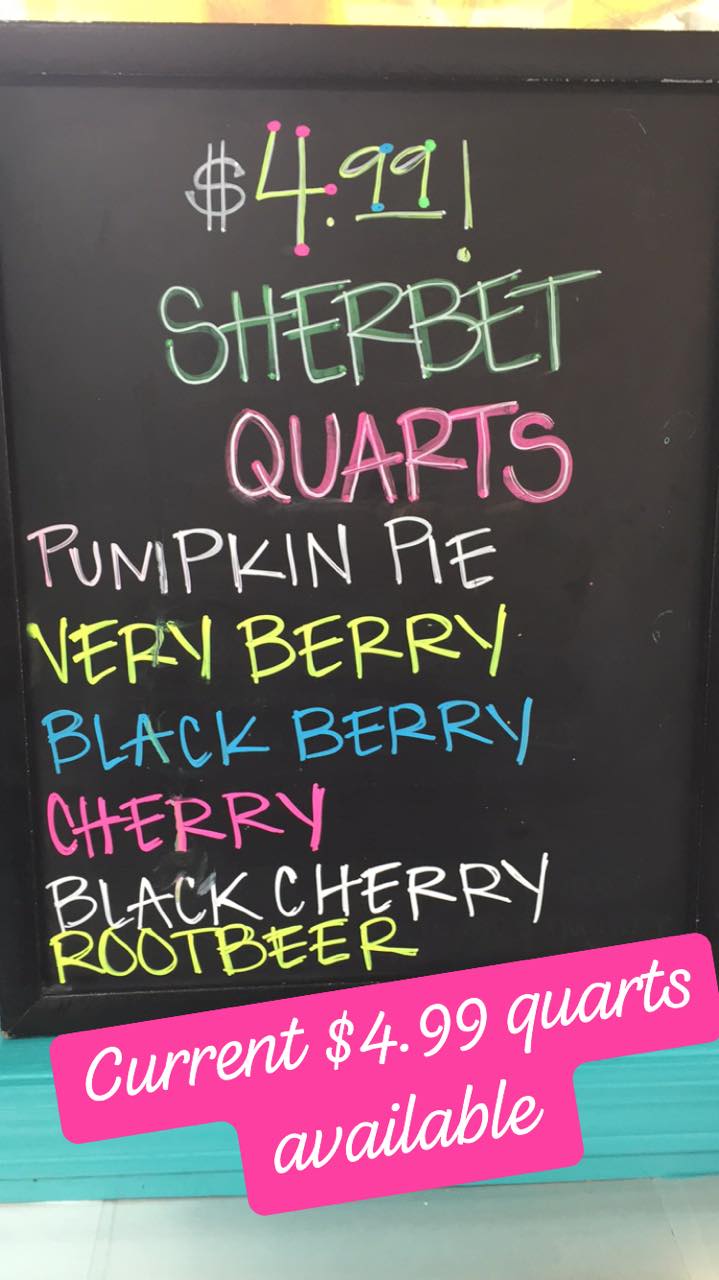 $4.99!
SHERBET
QUARTS
PUMPKIN PIE
VERY BERRY
BLACK BERRY
CHERRY
BLACK CHERRY
ROOTBEER
Current $4.99 quarts
available